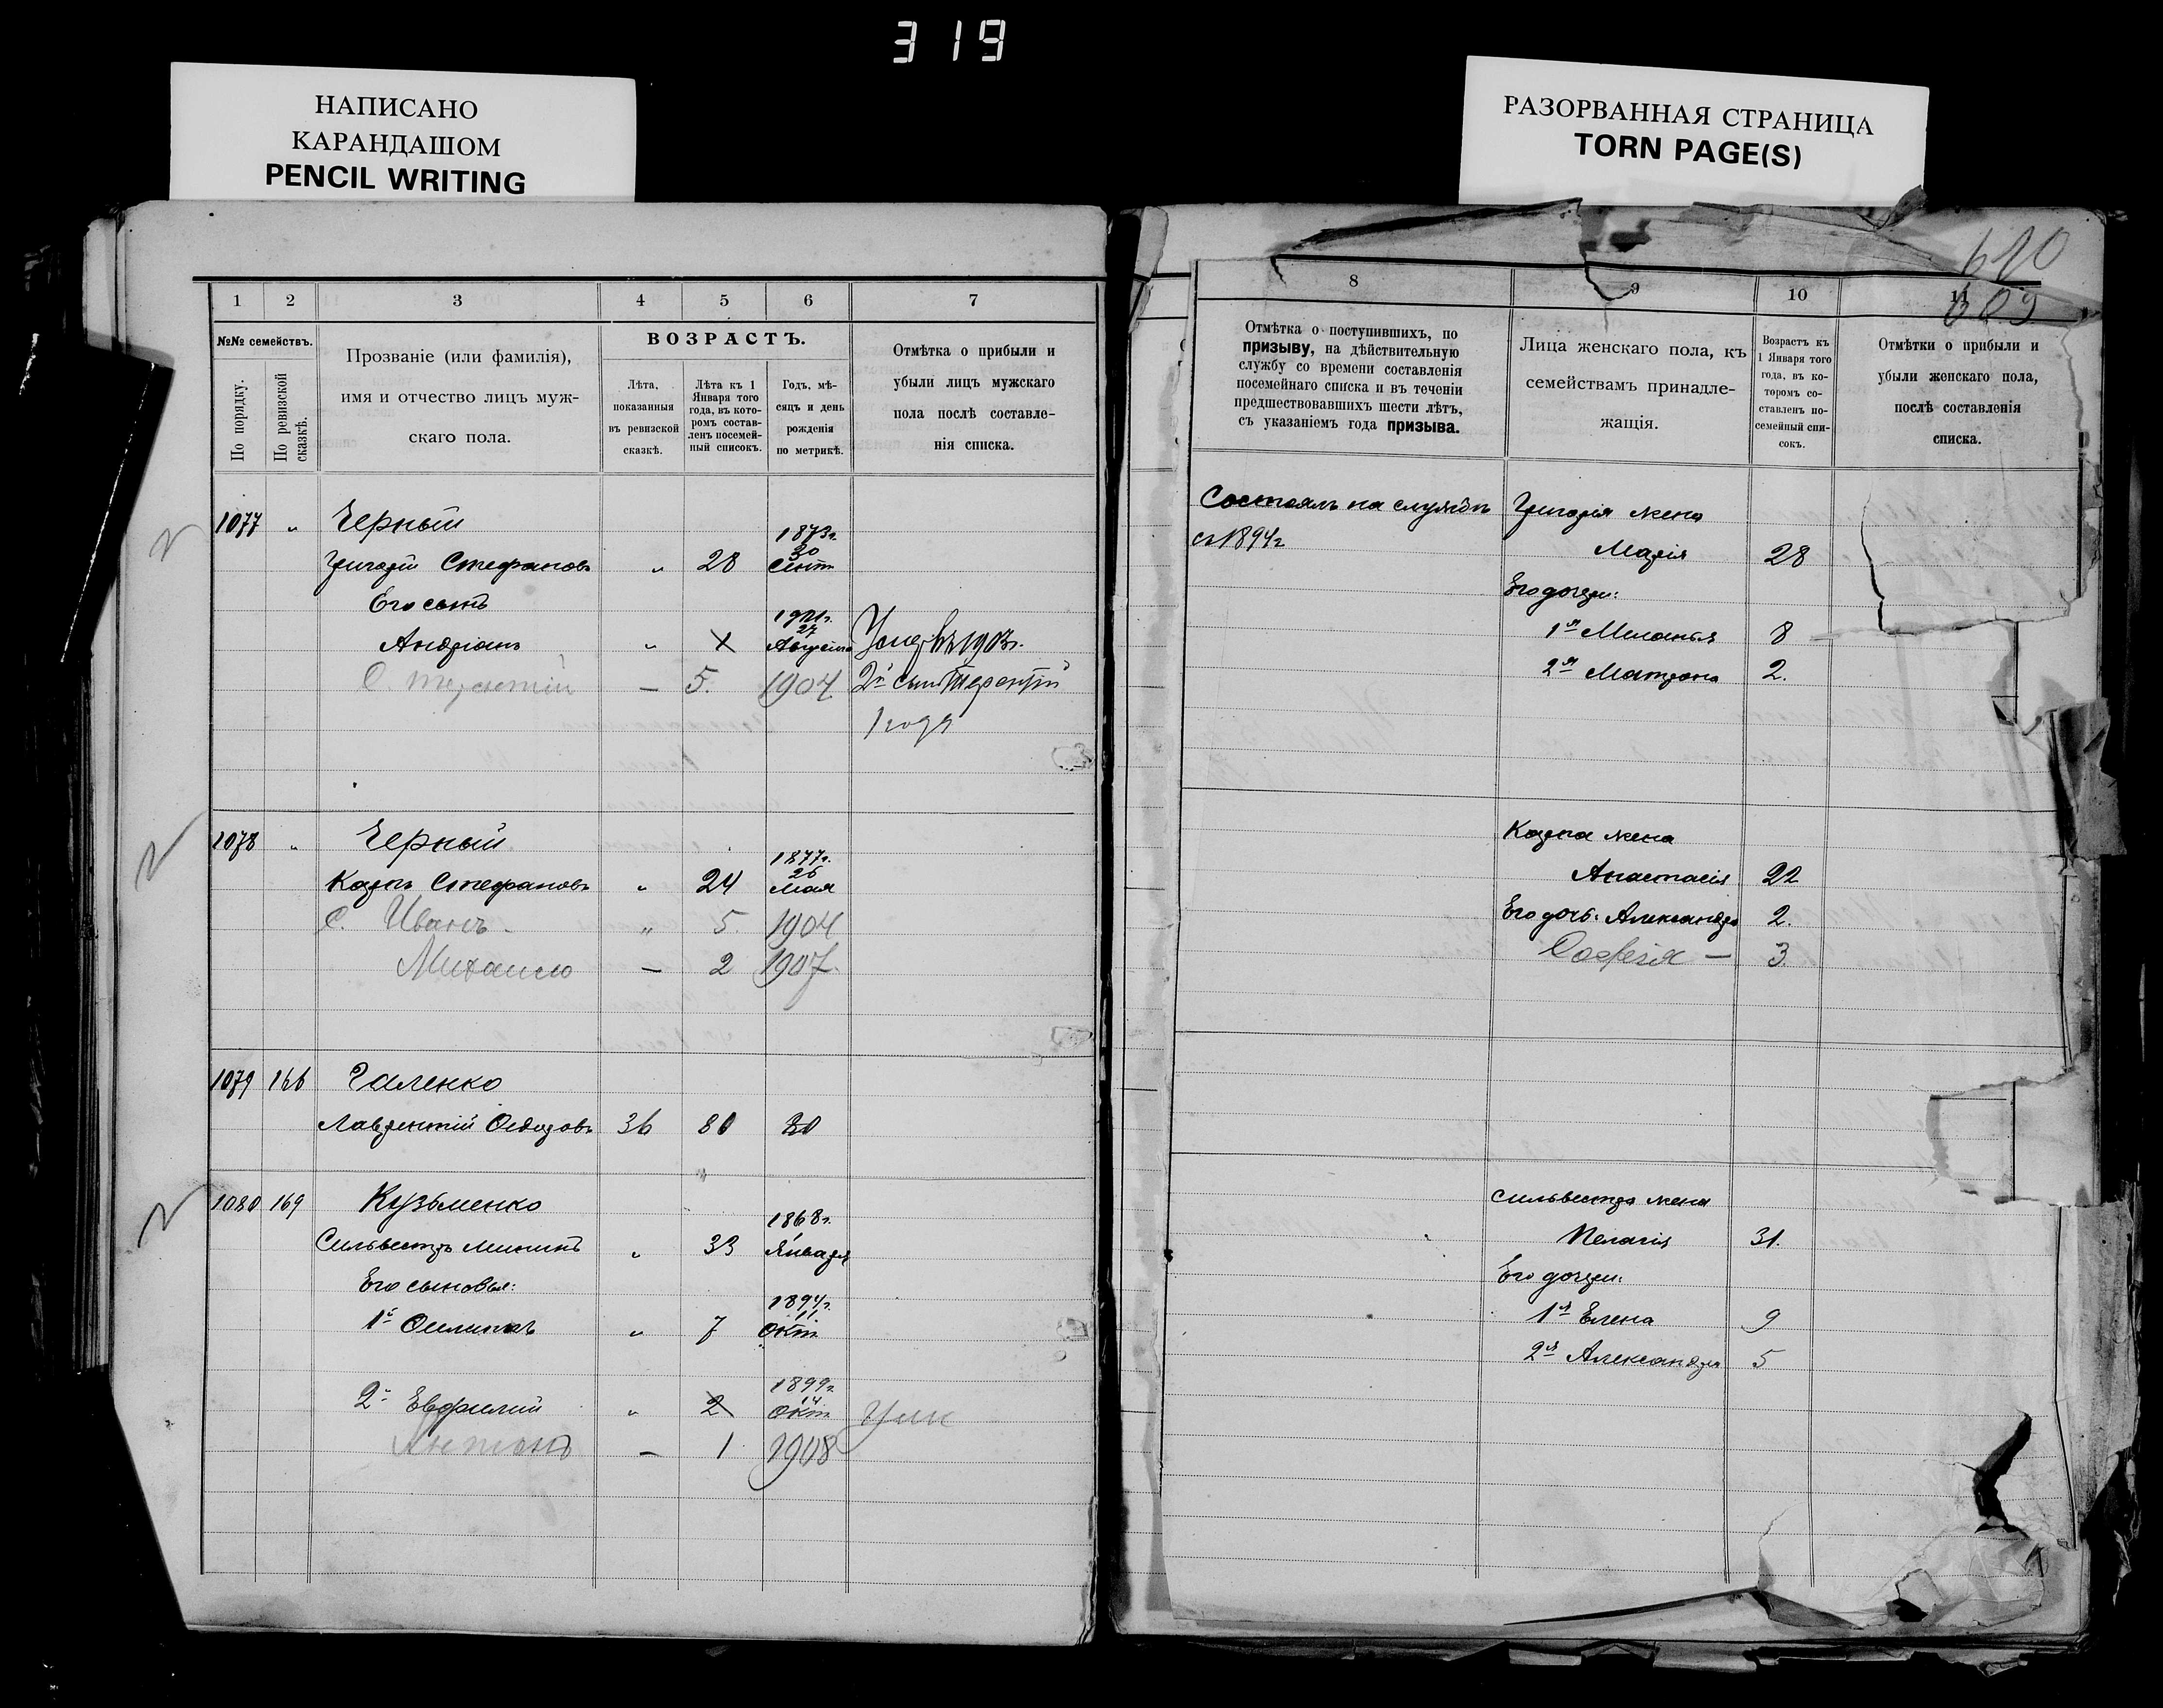 319
НАПИСАНО
КАРАНДАШОМ
PENCIL WRITING
РАЗОРВАННАЯ СТРАНИЦА
TORN PAGE(S)
610
609
1 2 3 4 5 6 7
№№ семействъ.
По порядку.
По ревизской сказкѣ.
Прозваніе (или фамилія),
имя и отчество лицъ муж-
скаго пола.
ВОЗРАСТЪ.
Лѣта,
показанныя
въ ревизской
сказкѣ.
Лѣта къ 1
Января того
года, въ кото-
ромъ состав-
ленъ посемей-
ный списокъ.
Годъ, мѣ-
сяцъ и день
рожденія
по метрикѣ.
Отмѣтка о прибыли и
убыли лицъ мужскаго
пола послѣ составле-
нія списка.
1077 " Черный
1873г.
30
Григорій Стефановъ " 28 Сент
Его сынъ
1901г.
27
Андріанъ " Августа Умер въ 1903г.
С. Терентій — 5. 1904 2й сынъ Терентій
1 года
1078 " Черный
1877г.
26
Карпъ Стефановъ " 24 Мая
С. Иванъ " 5. 1904
Михаило — 2 1907
1079 166 Галенко
Лаврентій Ѳедоровъ 36 80 80
1080 169 Кузьменко
1868г.
1
Сильвестръ Мининъ " 33 Января
Его сыновья:
1894г.
11
1й Филиппъ " 7 Окт
1899г.
14
2й Евфимій " 2 Окт Ум
Антонъ — 1 1908
8 9 10 11
Отмѣтка о поступившихъ, по
призыву, на дѣйствительную
службу со времени составленія
посемейнаго списка и въ теченіи
предшествовавшихъ шести лѣтъ,
съ указаніемъ года призыва.
Лица женскаго пола, къ
семействамъ принадле-
жащія.
Возрастъ къ
1 Января того
года, въ ко-
торомъ со-
ставленъ по-
семейный спи-
сокъ.
Отмѣтки о прибыли и
убыли женскаго пола,
послѣ составленія
списка.
Состоялъ на службѣ Григорія жена
съ 1894г
Марія 28
Его дочери:
1я Меланья 8
2я Матрона 2.
Карпа жена
Анастасія 22
Его дочь: Александра 2.
Софія — 3.
Сильвестра жена
Пелагія 31.
Его дочери:
1я Елена 9
2я Александра 5